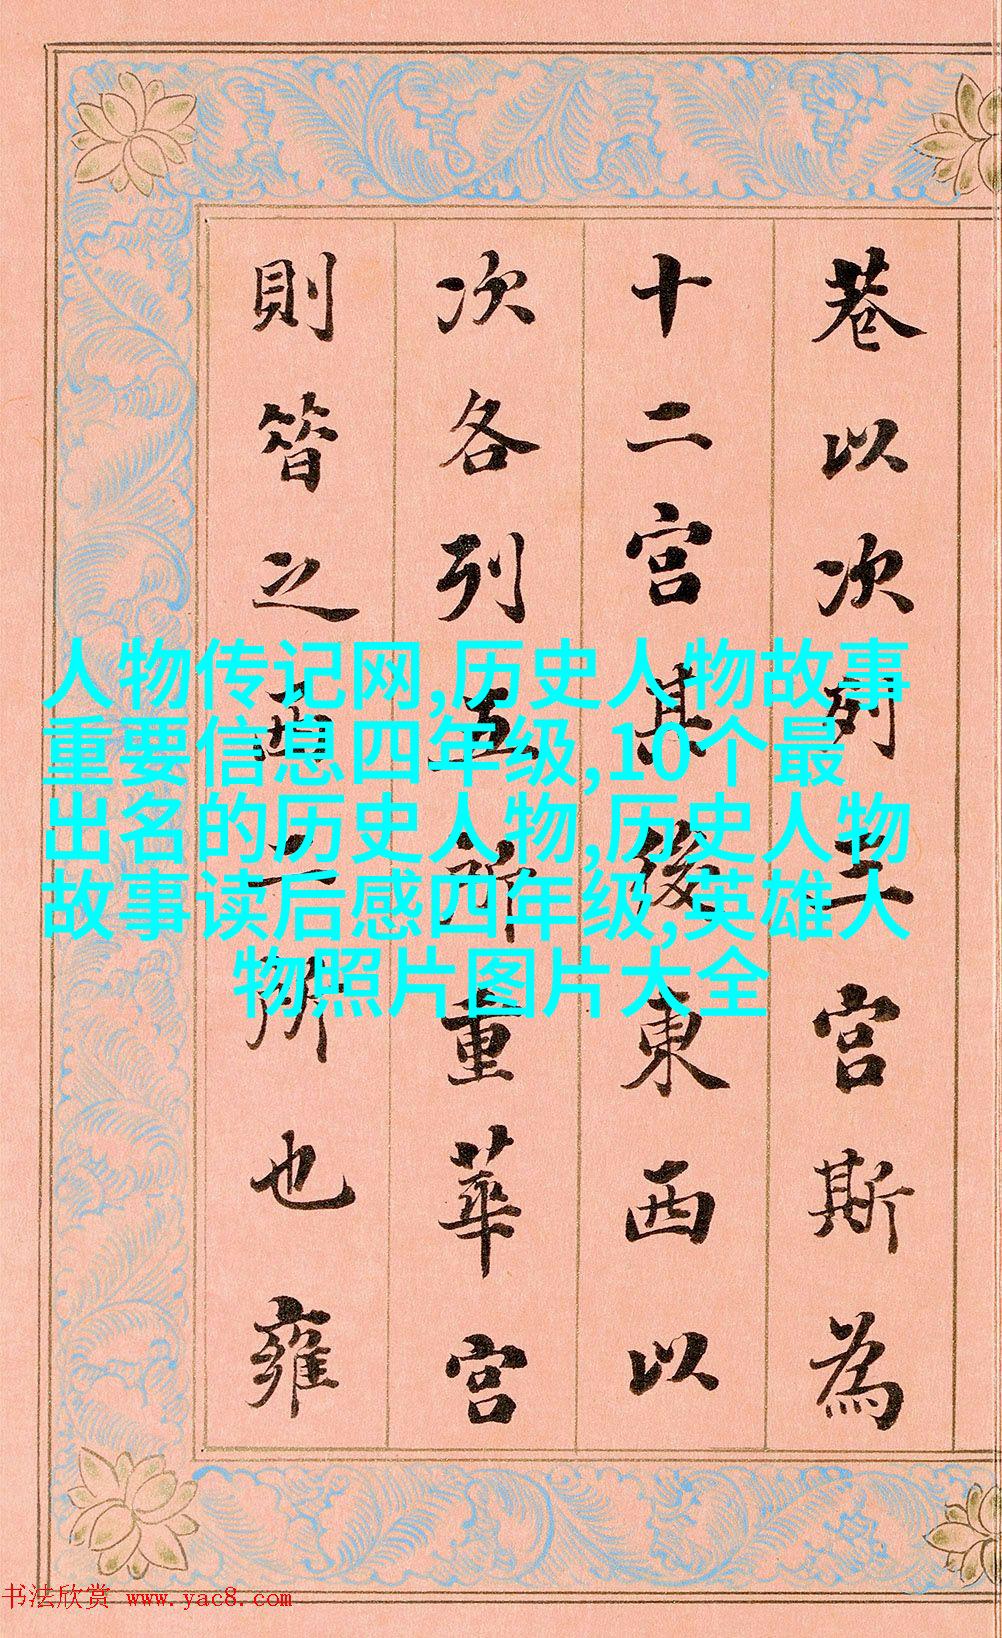 巷以次列宮斯為
十二宮其後東西以
次各列五所重華宮
則昔之西二所也雍
人物传记网,历史人物故事
重要信息四年级,10个最
出名的历史人物,历史人物
故事读后感四年级,英雄人
物照片图片大全
书法欣赏 www.yac8.com